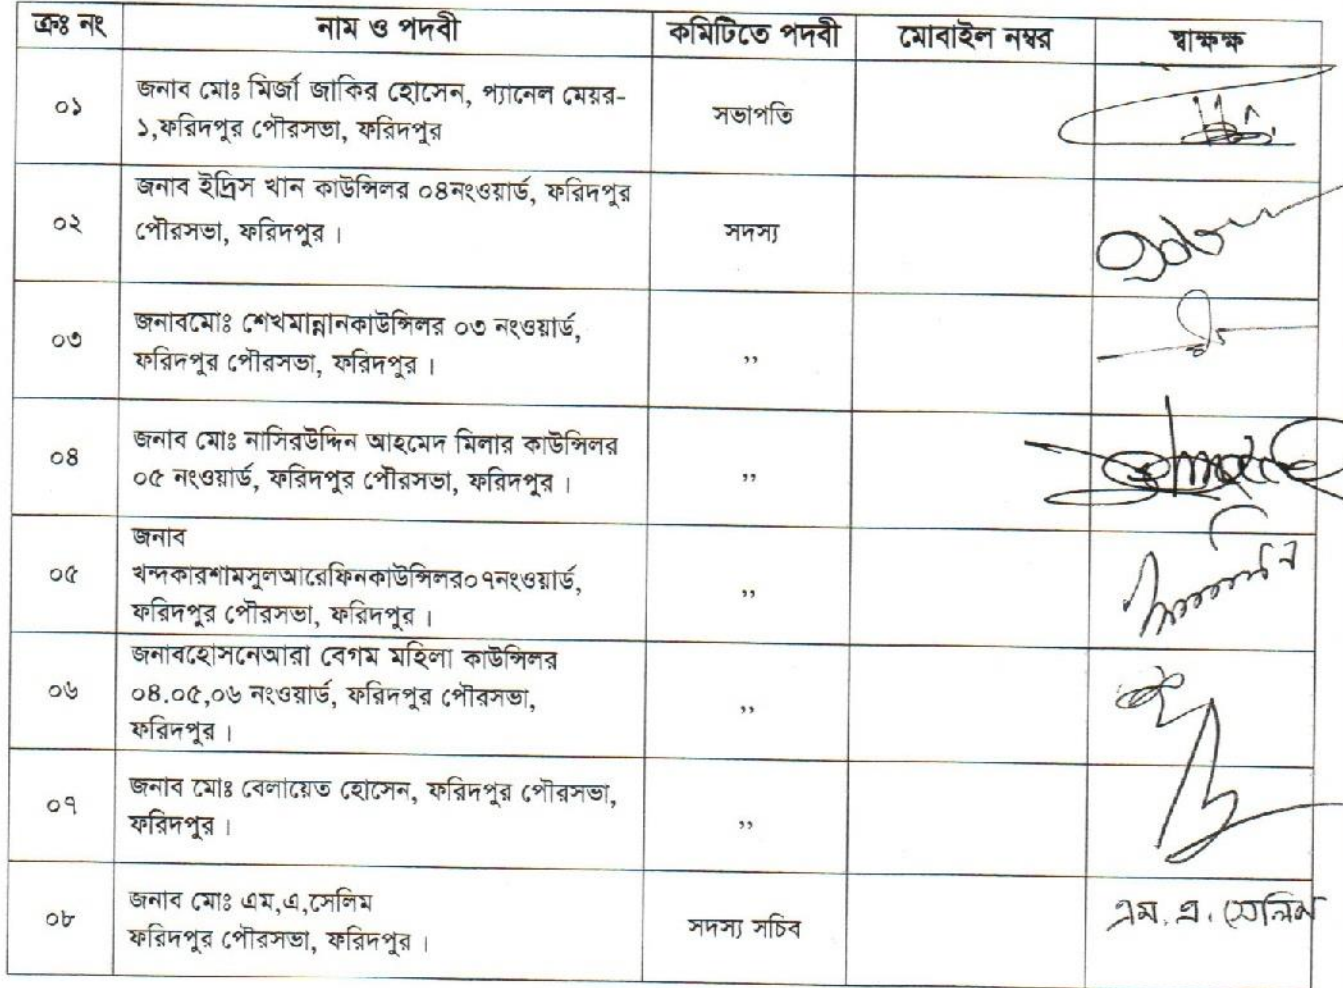 ক্রঃ নং নাম ও পদবী কমিটিতে পদবী মোবাইল নম্বর স্বাক্ষক্ষ
০১ জনাব মোঃ মির্জা জাকির হোসেন, প্যানেল মেয়র- সভাপতি
১,ফরিদপুর পৌরসভা, ফরিদপুর
০২ জনাব ইদ্রিস খান কাউন্সিলর ০৪নংওয়ার্ড, ফরিদপুর সদস্য
পৌরসভা, ফরিদপুর।
০৩ জনাবমোঃ শেখমান্নানকাউন্সিলর ০৩ নংওয়ার্ড, ,,
ফরিদপুর পৌরসভা, ফরিদপুর।
০৪ জনাব মোঃ নাসিরউদ্দিন আহমেদ মিলার কাউন্সিলর ,,
০৫ নংওয়ার্ড, ফরিদপুর পৌরসভা, ফরিদপুর।
০৫ জনাব ,,
খন্দকারশামসুলআরেফিনকাউন্সিলর০৭নংওয়ার্ড,
ফরিদপুর পৌরসভা, ফরিদপুর।
০৬ জনাবহোসনেআরা বেগম মহিলা কাউন্সিলর ,,
০৪.০৫,০৬ নংওয়ার্ড, ফরিদপুর পৌরসভা,
ফরিদপুর।
০৭ জনাব মোঃ বেলায়েত হোসেন, ফরিদপুর পৌরসভা, ,,
ফরিদপুর।
০৮ জনাব মোঃ এম,এ,সেলিম সদস্য সচিব এম. এ. সেলিম
ফরিদপুর পৌরসভা, ফরিদপুর।